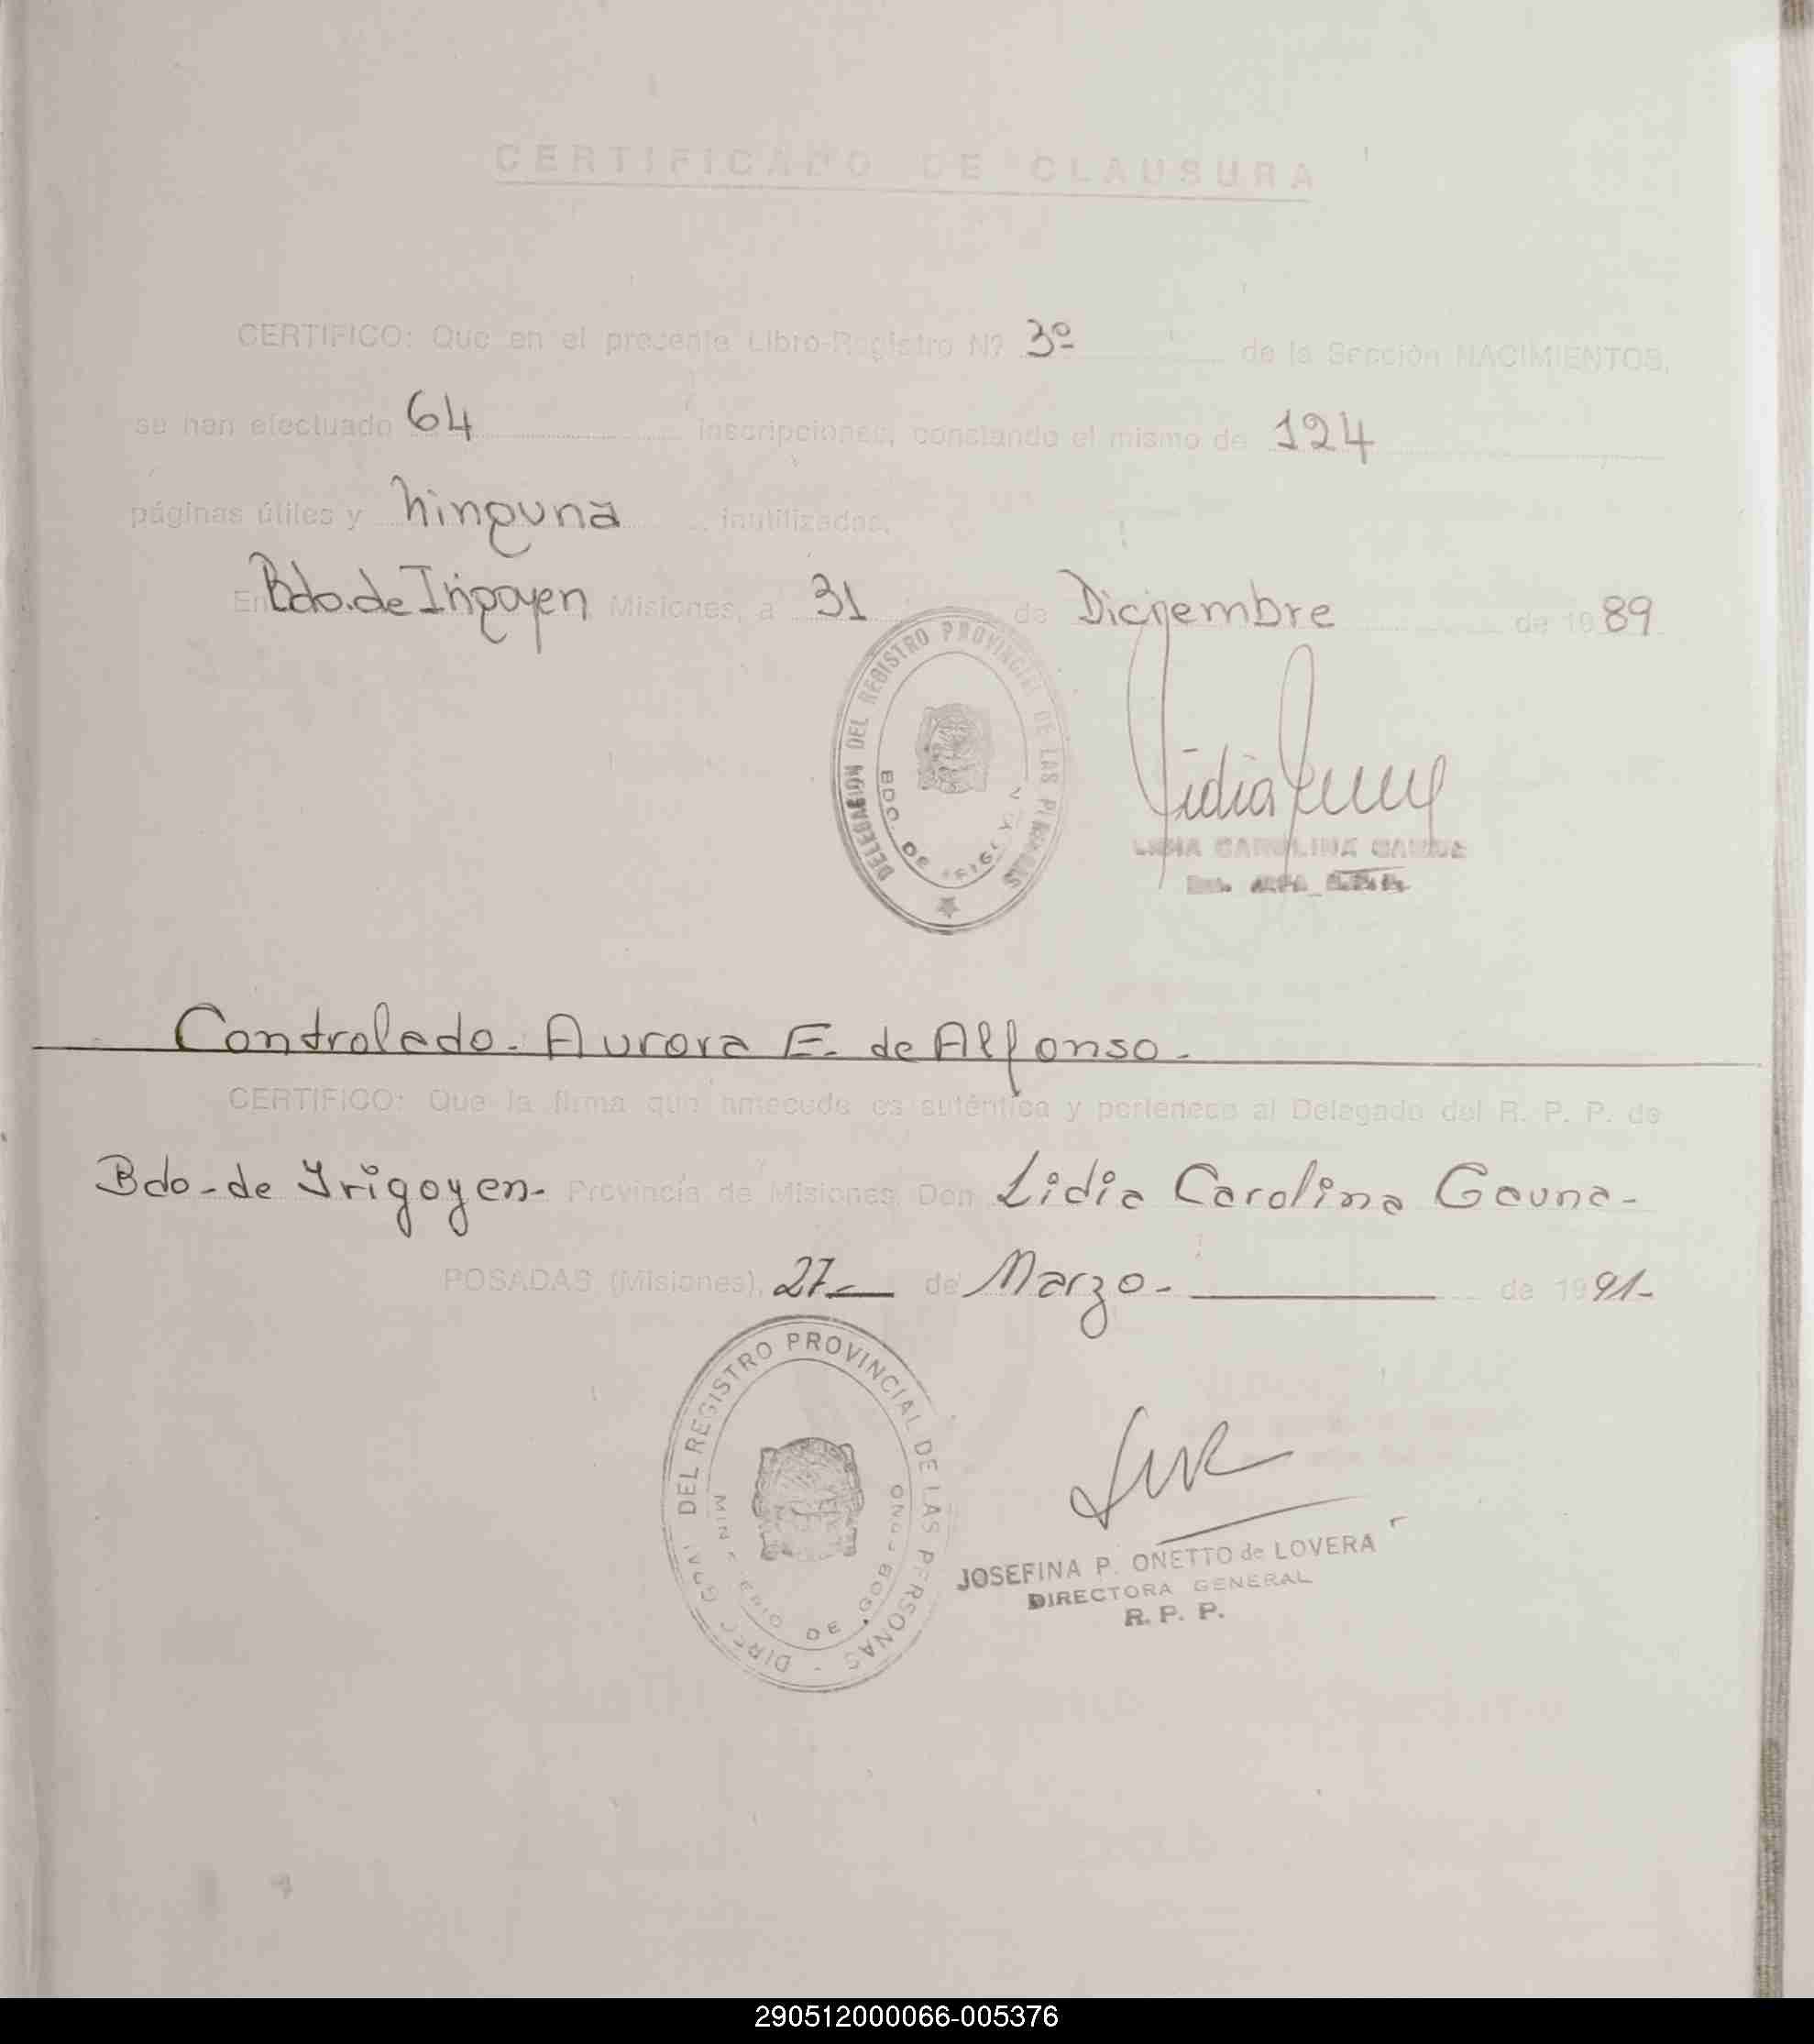 CERTIFICADO DE CLAUSURA
CERTIFICO: Que en el presente Libro-Registro Nº 3º de la Sección NACIMIENTOS,
se han efectuado 64 inscripciones, constando el mismo de 124
páginas útiles y ninguna inutilizadas.
En Bdo. de Irigoyen Misiones, a 31 de Diciembre de 1989
DELEGACION DEL REGISTRO PROVINCIAL DE LAS PERSONAS
BDO. DE IRIGOYEN
Lidia
LIDIA CAROLINA GAUNA
Controlado. Aurora E. de Alfonso.
CERTIFICO: Que la firma que antecede es auténtica y pertenece al Delegado del R. P. P. de
Bdo-de Irigoyen- Provincia de Misiones Don Lidia Carolina Gauna-
POSADAS (Misiones), 27- de Marzo- de 1991-
DIREC. GRAL. DEL REGISTRO PROVINCIAL DE LAS PERSONAS -
MINISTERIO DE GOBIERNO
JOSEFINA P. ONETTO de LOVERA
DIRECTORA GENERAL
R. P. P.
290512000066-005376